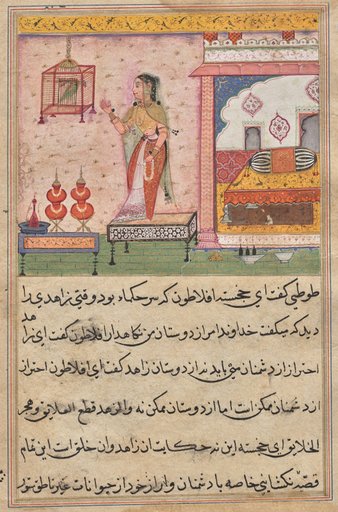 طوطی کفت ای خجسته افلاطون که سر حکماء بود وقتی زاهدی را
دید که میکفت خداوندا مرا از دوستان من نکاهدار افلاطون کفت ای زاهد
احتراز از دشمنان می باید نه از دوستان زاهد کفت ای افلاطون احتراز
از دشمنان ممکن است اما از دوستان ممکن نه والزهد قطع العلایق و هجر
الخلایق ای خجسته این نه حکایت زاهدوان خلوست این تمام
قصه نخشبی خاصه با دشمنان و از خود از حیوانات غیر ناطق